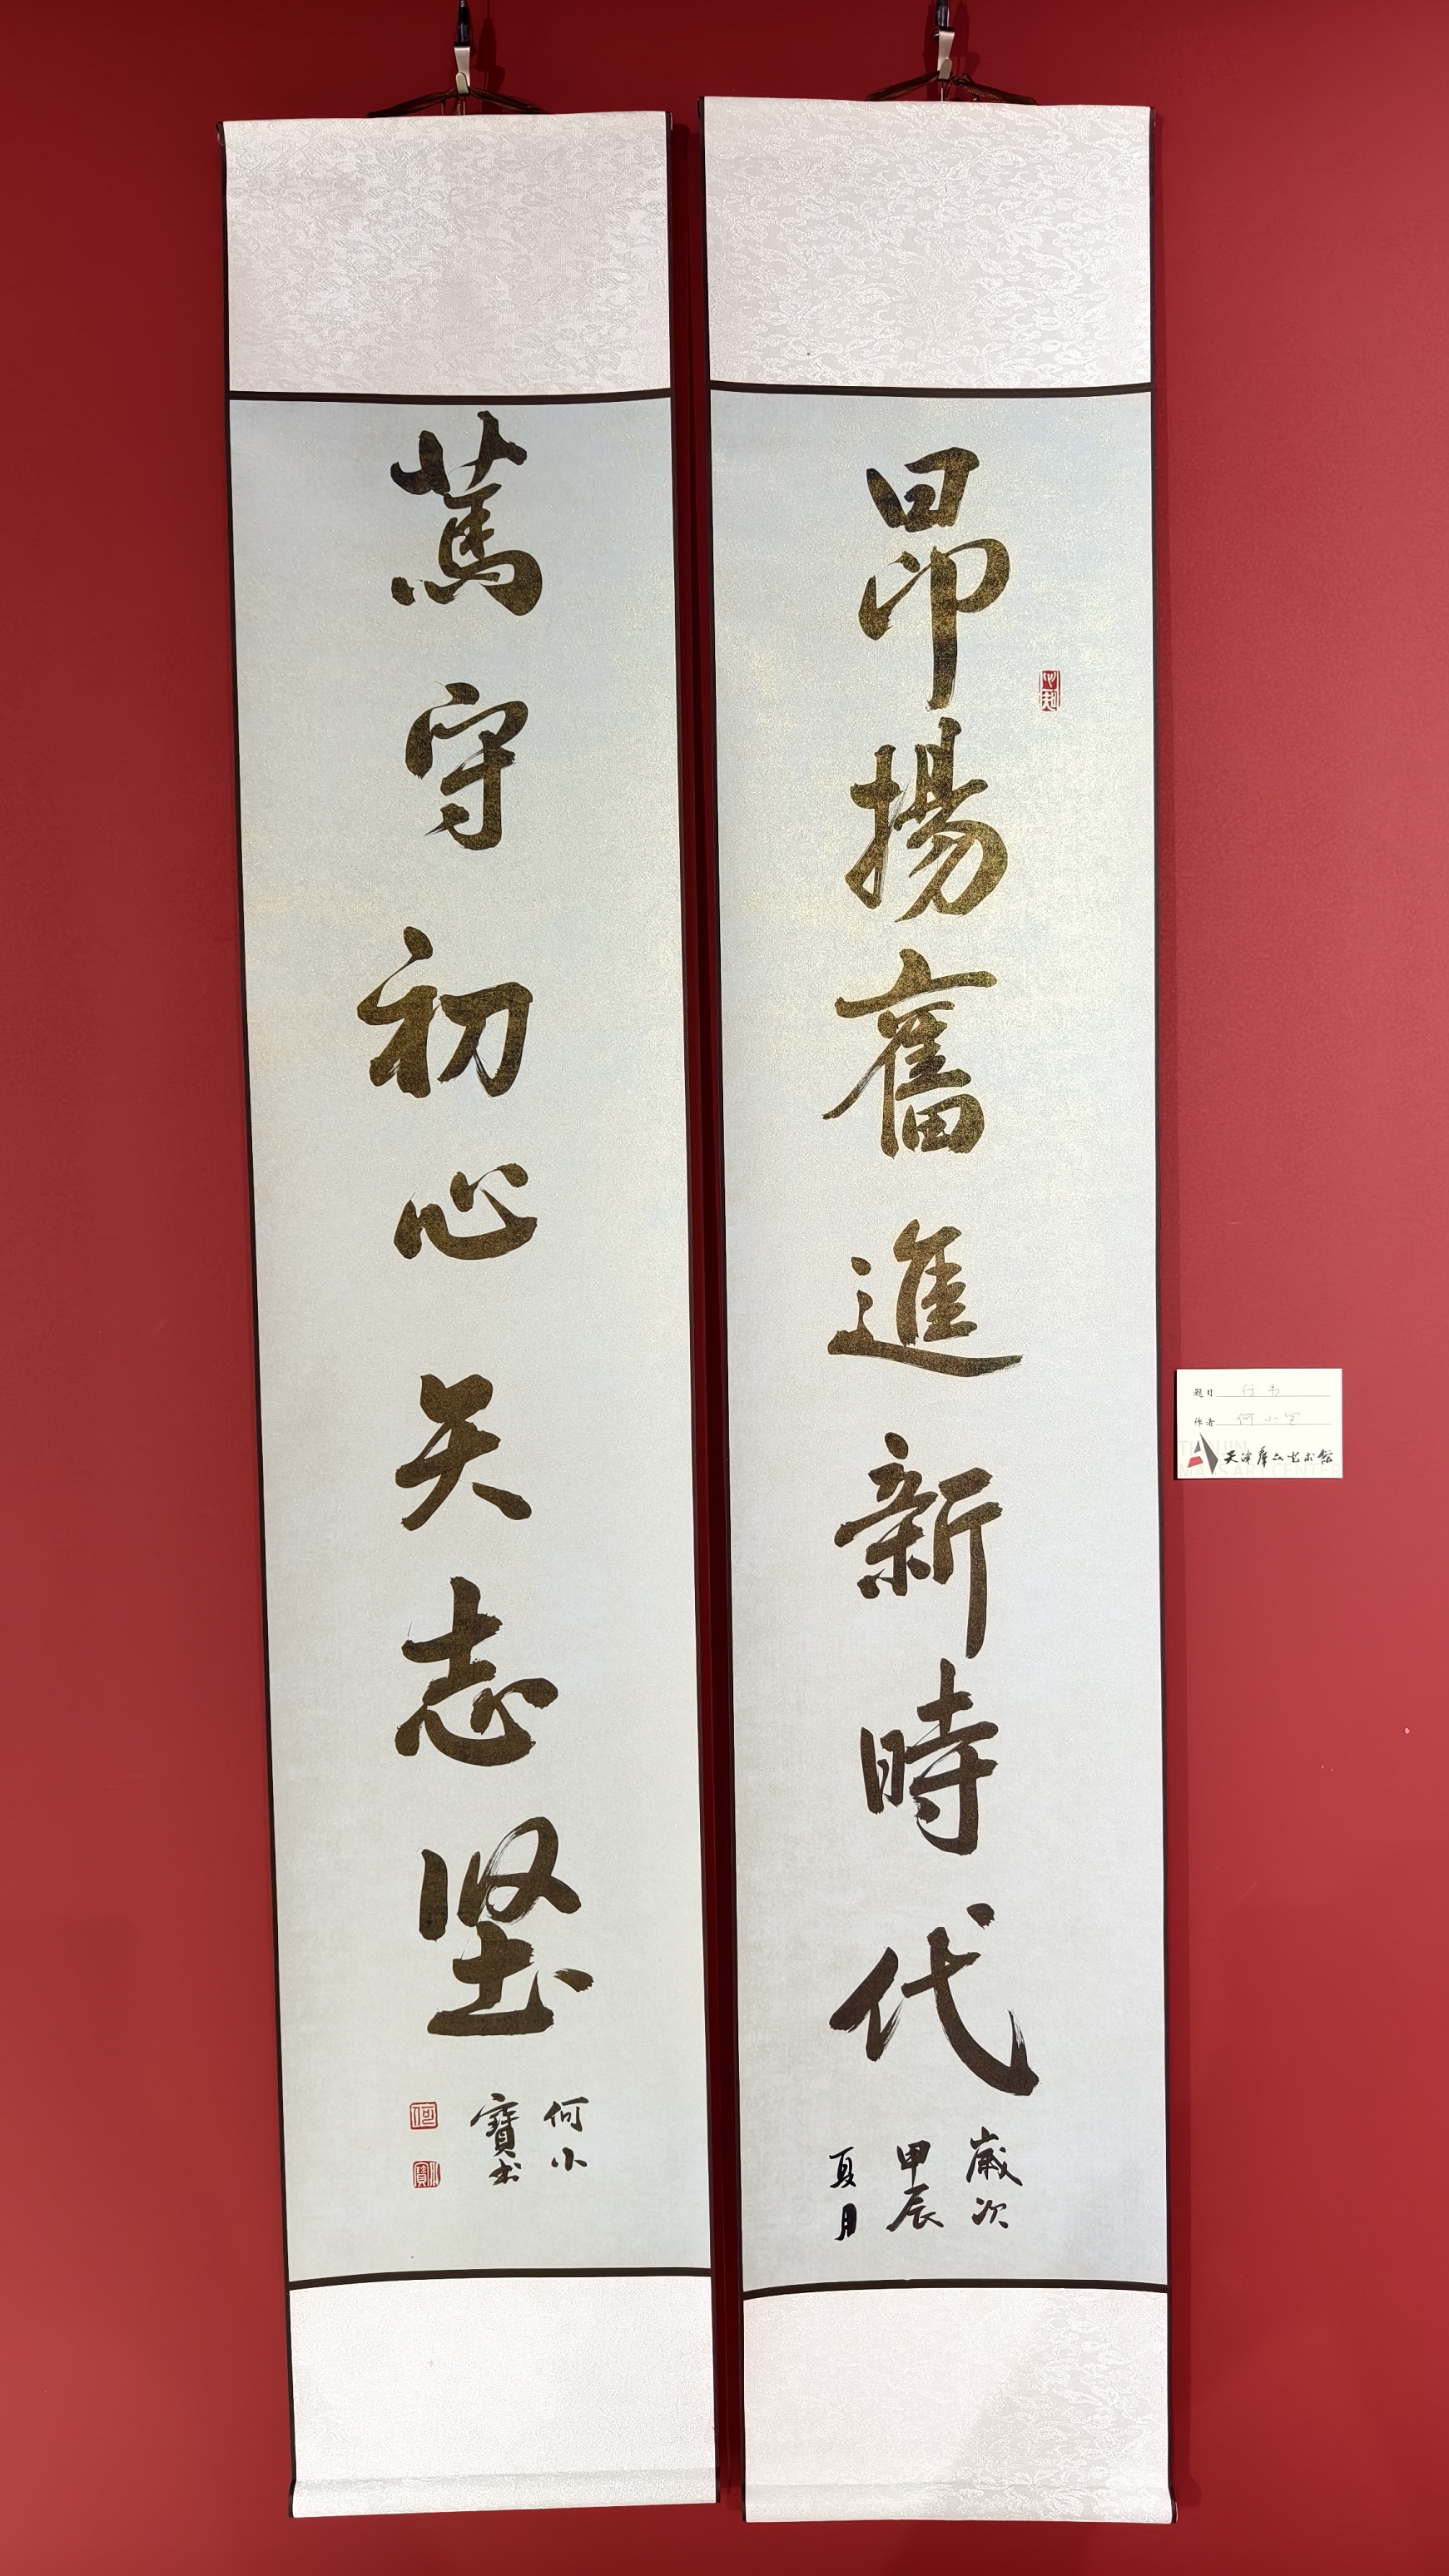 昂揚奮進新時代
歲次
甲辰
夏月
篤守初心矢志坚
何小
寶书
题目 行书
作者 何小宝
天津群众艺术馆